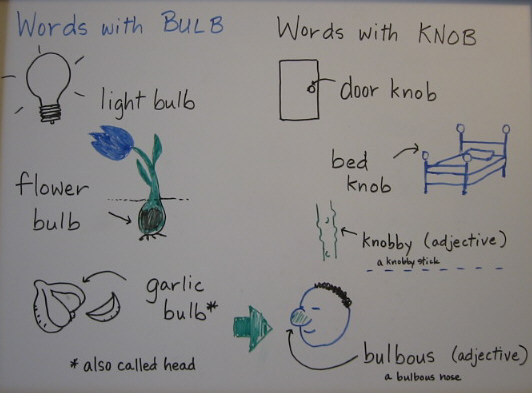 Words with BULB
light bulb
flower
bulb
garlic
bulb*
* also called head
Words with KNOB
door knob
bed
knob
knobby (adjective)
a knobby stick
bulbous (adjective)
a bulbous nose